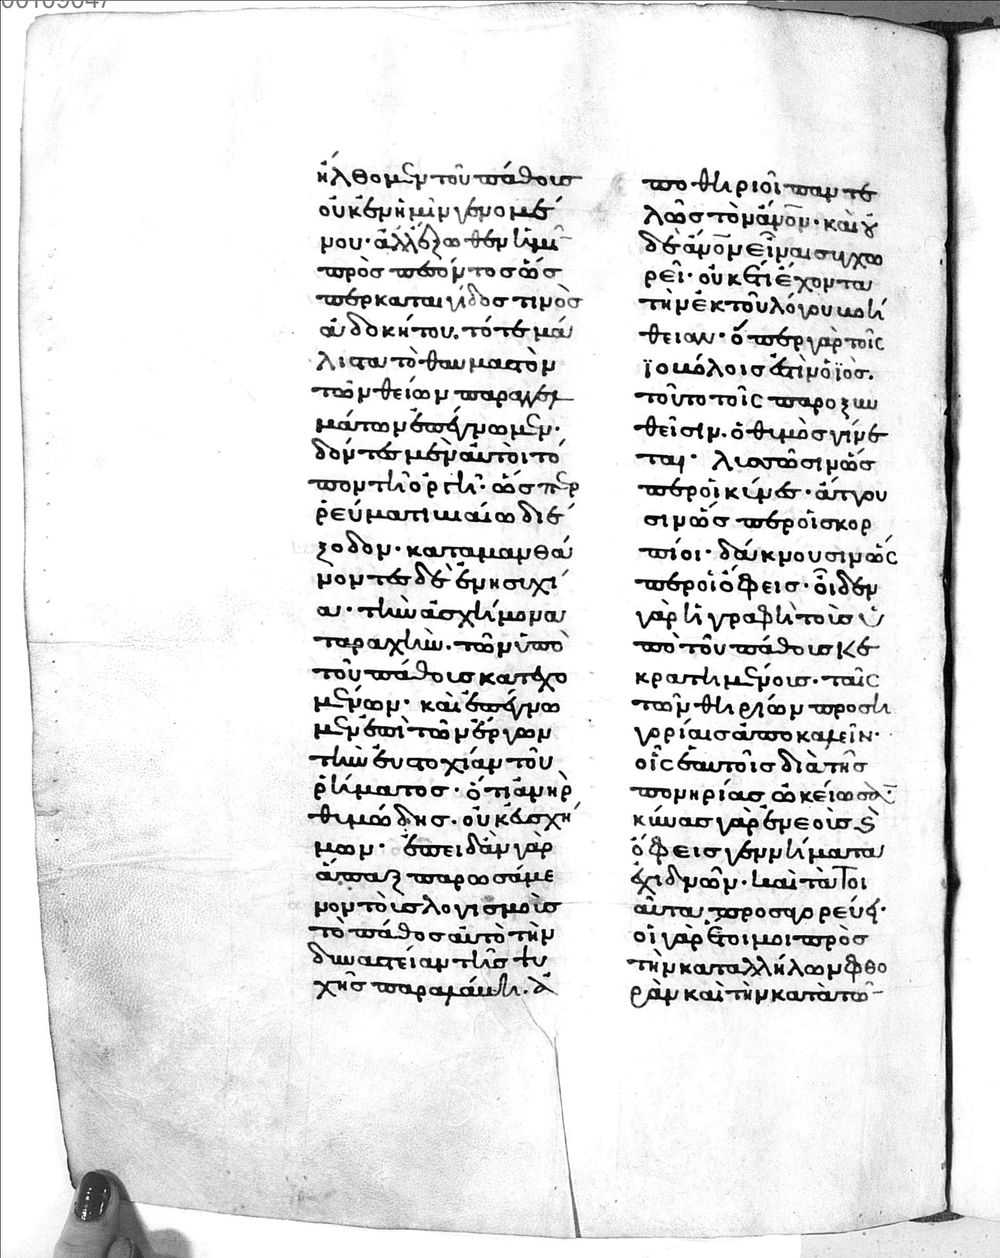 ήλθομεν τοῦ πάθους
οὐκ ἐν ἡμῖν γενομέ
νου· ἀλλ' ἔξωθεν ἡμῖν
προσπεσόντος ὡς
περ καταιγίδος τινὸς
ἀδοκήτου. τότε μά
λιστα τὸ θαυμαστὸν
τῶν θείων παραγγελ
μάτων ἐπέγνωμεν·
δόντες μὲν αὐτοὶ τό
πον τῇ ὀργῇ· ὥσπερ
ῥεύματι βιαίω διέ
ξοδον· καταμανθά
νοντες δὲ ἐν ἡσυχί
α· τὴν ἀσχήμονα
ταραχὴν. τῶν ὑπὸ
τοῦ πάθους κατεχο
μένων· καὶ ἐπέγνω
μεν ἐπὶ τῶν ἔργων
τὴν εὐστοχίαν τοῦ
ῥήματος· ὅτι ἀνὴρ
θυμώδης. οὐκ εὐσχή
μων· ἐπειδὰν γὰρ
ἅπαξ παρωσάμε
νον τοὺς λογισμοὺς
τὸ πάθος αὐτὸ τὴν
δυναστείαν τῆς ψυ
χῆς παραλάβη.
ποθηριοῖ παντε
λῶς τὸν ἄνον· καὶ οὐ
δὲ ἄνον εἶναι συγχω
ρεῖ· οὐκέτι ἔχοντα
τὴν ἐκ τοῦ λόγου βοή
θειαν· ὅπερ γὰρ τοῖς
ϊοβόλοις ἐστὶν ὁ ϊὸς.
τοῦτο τοῖς παροξυν
θεῖσιν. ὁ θυμὸς γίνε
ται· λυσσῶσιν ὡς
περ οἱ κύνες· ἅπτου
σιν ὥσπερ οἱ σκορ
πίοι· δάκνουσιν ὡς
περ οἱ ὄφεις· οἶδεν
γὰρ ἡ γραφὴ τοὺς ὑ
πὸ τοῦ πάθους κε
κρατημένους· ταῖς
τῶν θηρίων προση
γορίαις ἀποκαλεῖν·
οἷς ἑαυτοὺς διὰ τῆς
πονηρίας ὠκείωσαν·
κύνας γὰρ ἐνεοὺς καὶ
ὄφεις γεννήματα
ἐχιδνῶν· καὶ τὰ τοι
αῦτα προσαγορεύει·
οἱ γὰρ ἕτοιμοι πρὸς
τὴν κατ' ἀλλήλων φθο
ρὰν καὶ τὴν κατὰ τῶν